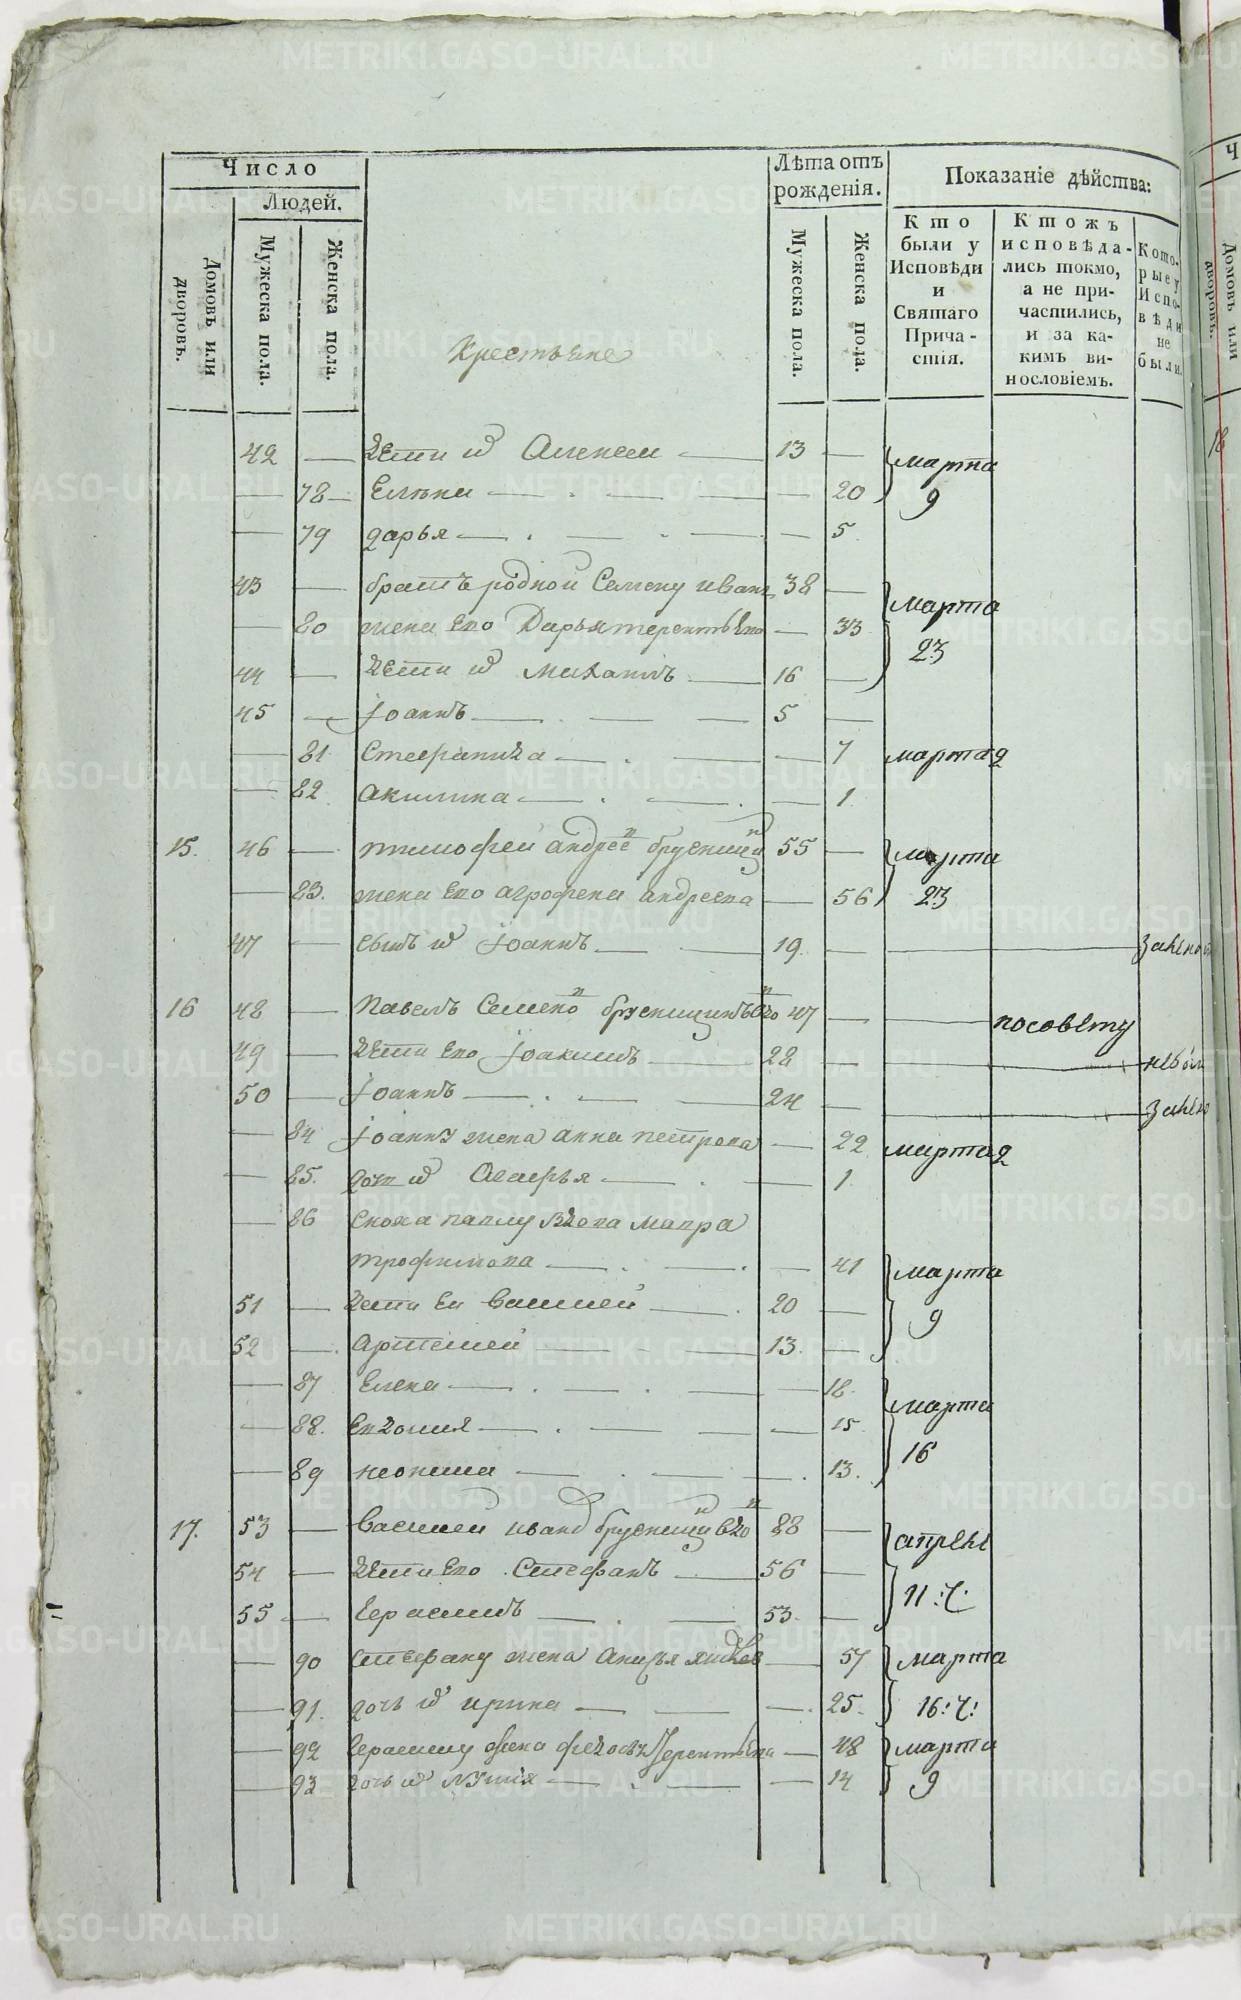 Число
Людей.
Домовъ или дворовъ.
Мужеска пола.
Женска пола.
Лѣта отъ рожденія.
Мужеска пола.
Женска пола.
Показаніе дѣйства:
Кто были у Исповѣди и Святаго Причастія.
Ктожъ исповѣдались токмо, а не причастились, и за какимъ винословіемъ.
Которые у Исповѣди не были.
Крестьяне
42 — дети ихъ Алексей — 13 — марта
— 78 Елѣна — 20 9
— 79 дарья — 5
43 — братъ родной Семену иванъ 38 — марта
— 80 жена его Дарья терентьева — 33
44 — дети ихъ михаилъ — 16 — 23
45 — іоаннъ — 5 —
— 81 Стефанида — 7 марта 9
— 82 акилина — 1
15. 46 — тимофей андрее брусницы 55 — марта
— 83. жена его агрофена андреева — 56 23
47 — сынъ ихъ іоаннъ — 19 —
16 48 — павелъ Семено брусницинъ вдо 47 — посовѣту
49 — дети его іоакимъ — 28 —
50 — іоаннъ — 24 —
— 84 іоанну жена анна петрова — 22 марта 9
— 85. дочь ихъ Агафья — 1
— 86 сноха павлу вдова мавра
трофимова — 41 марта
51 — дети ея василей — 20 — 9
52 — артемей — 13. —
— 87 Елена — 18 марта
— 88. Евдокия — 15
— 89 — 13. 16
17. 53 — василей ивано брусницы вдо 88 — апреля
54 — дети его Стефанъ — 56 — 11:ч:
55 — Герасимъ — 53 —
— 90 стефану жена — 57 марта
— 91. дочь ихъ ирина — 25. 16:ч:
— 92 Герасиму жена федосья Терентьева — 48 марта
— 93 дочь ихъ — 14 9
Ч
Домовъ или дворовъ.
18
METRIKI.GASO-URAL.RU